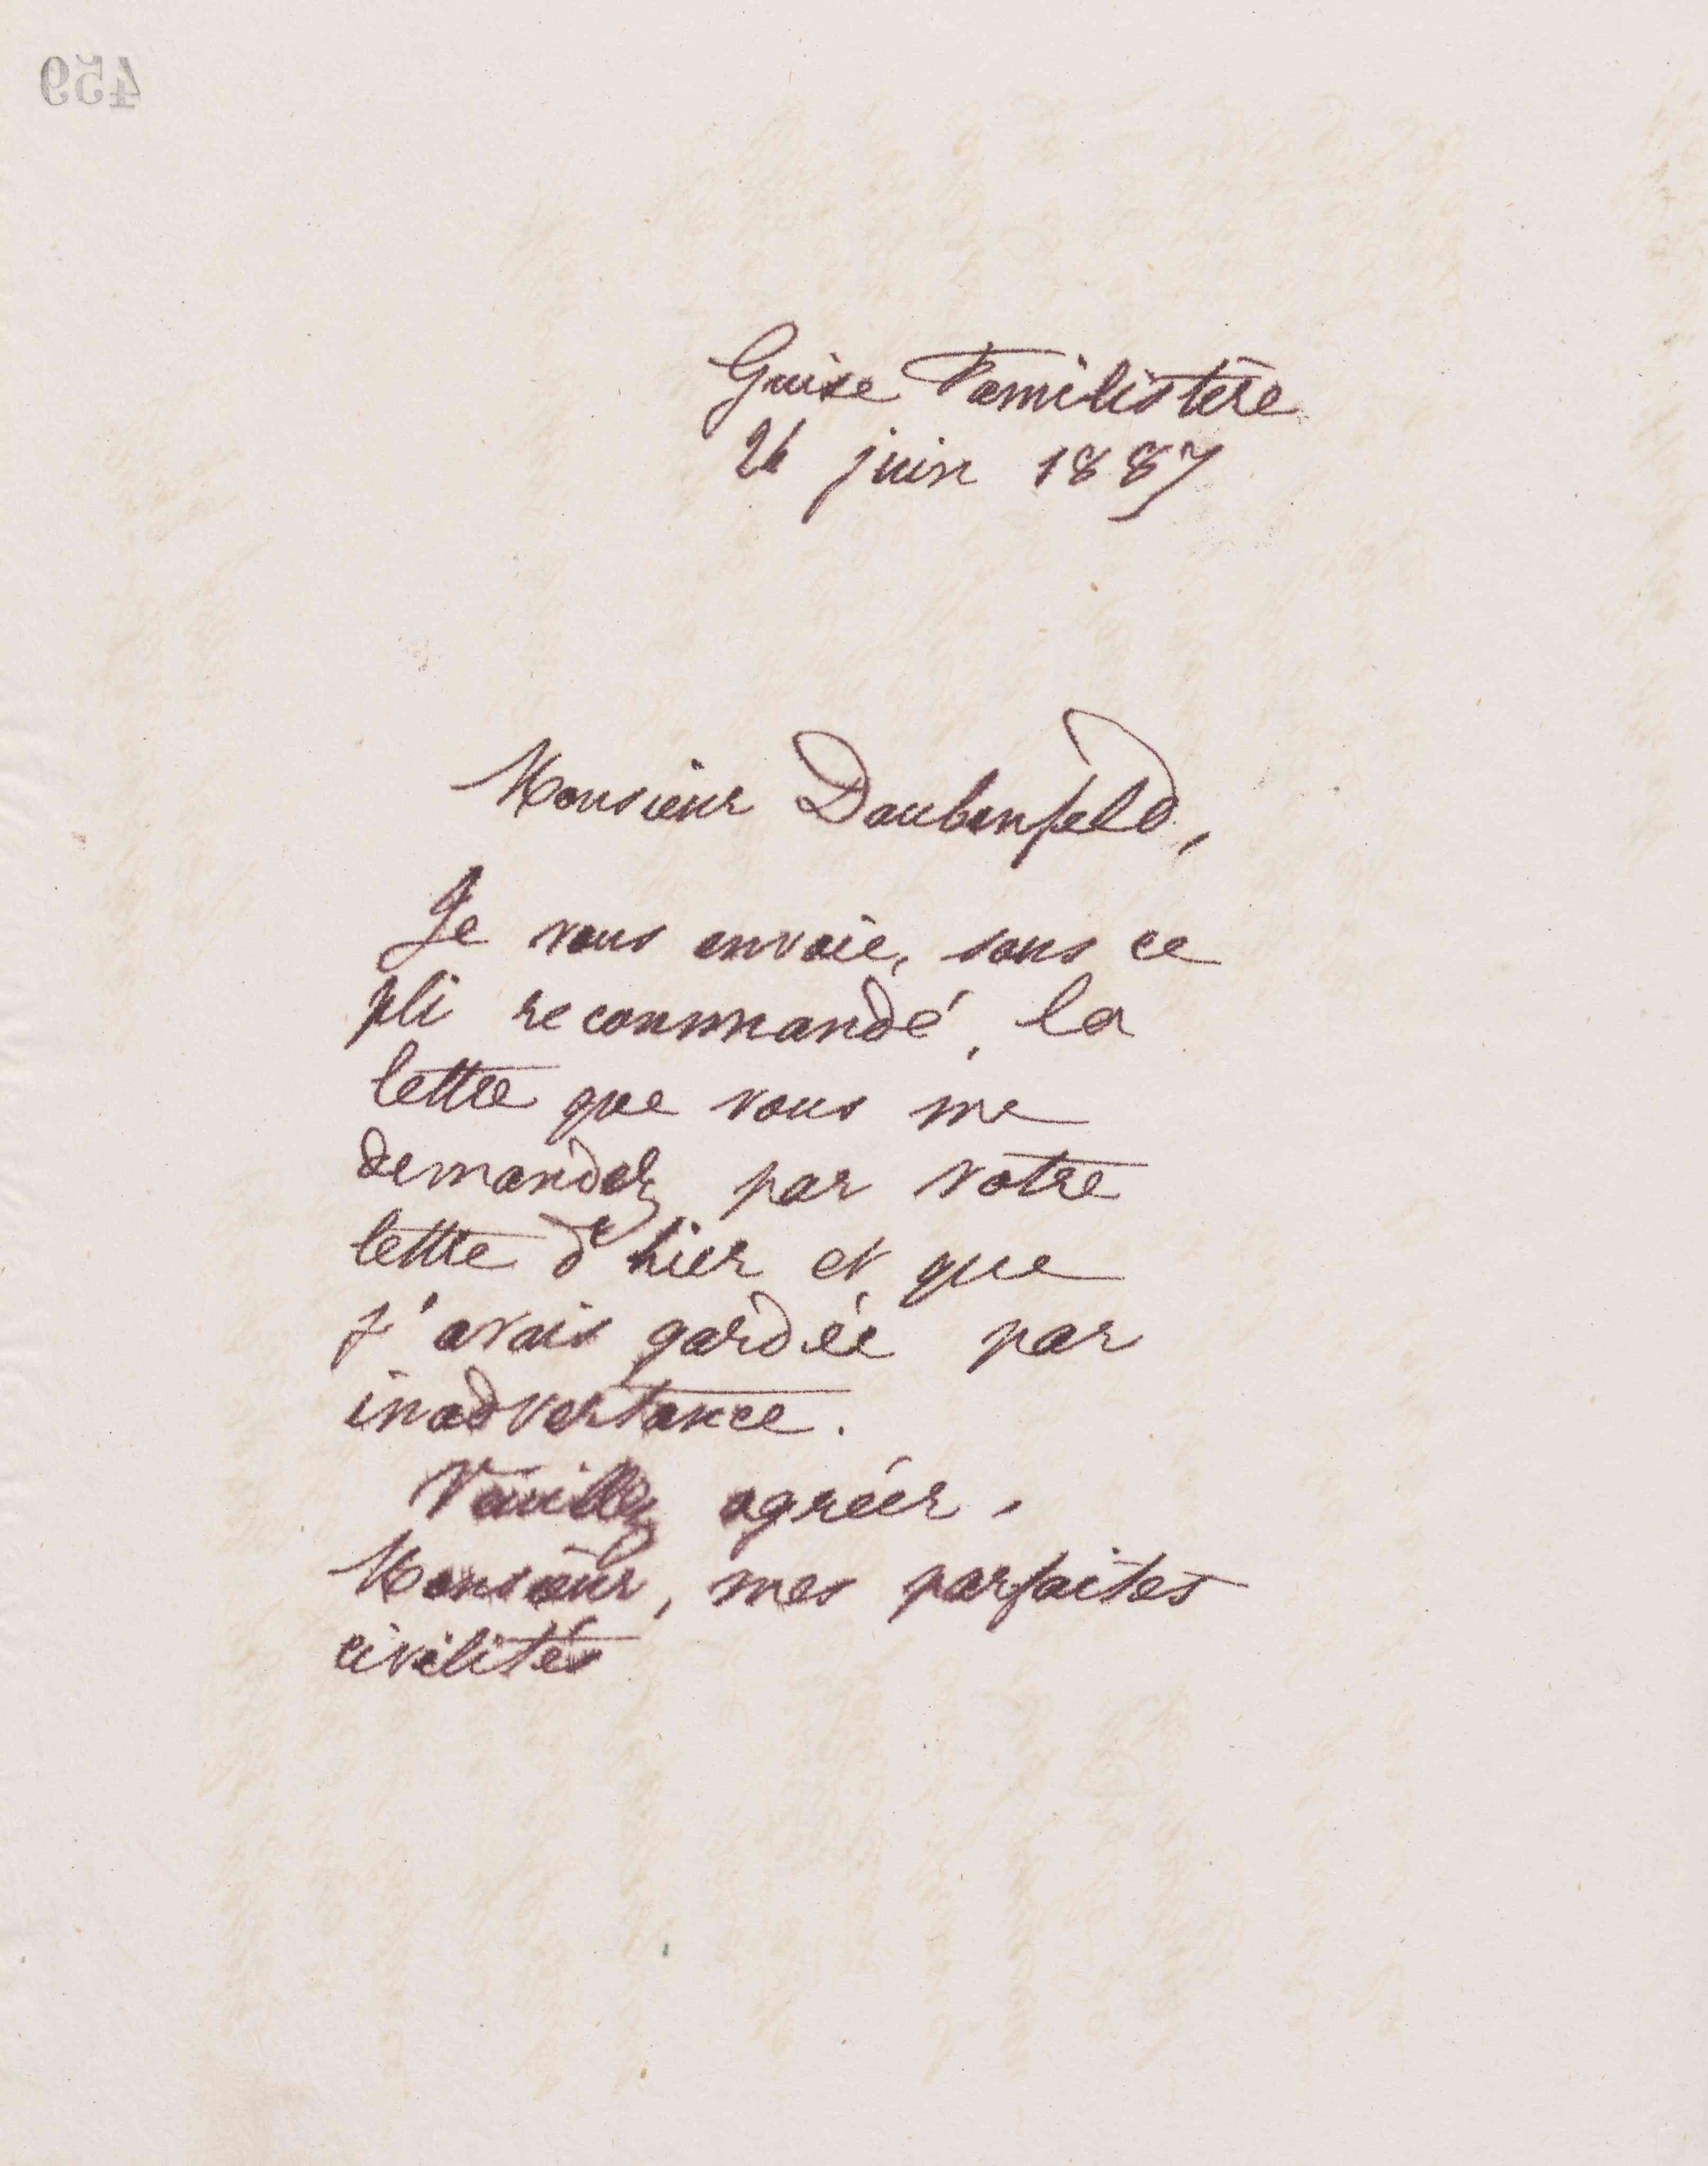 459
Guise Familistère
24 juin 1887
Monsieur Daubenfeld,
Je vous envoie, sous ce
pli recommandé, la
lettre que vous me
demandez par votre
lettre d'hier et que
j'avais gardée par
inadvertance.
Veuillez agréer,
Monsieur, mes parfaites
civilités